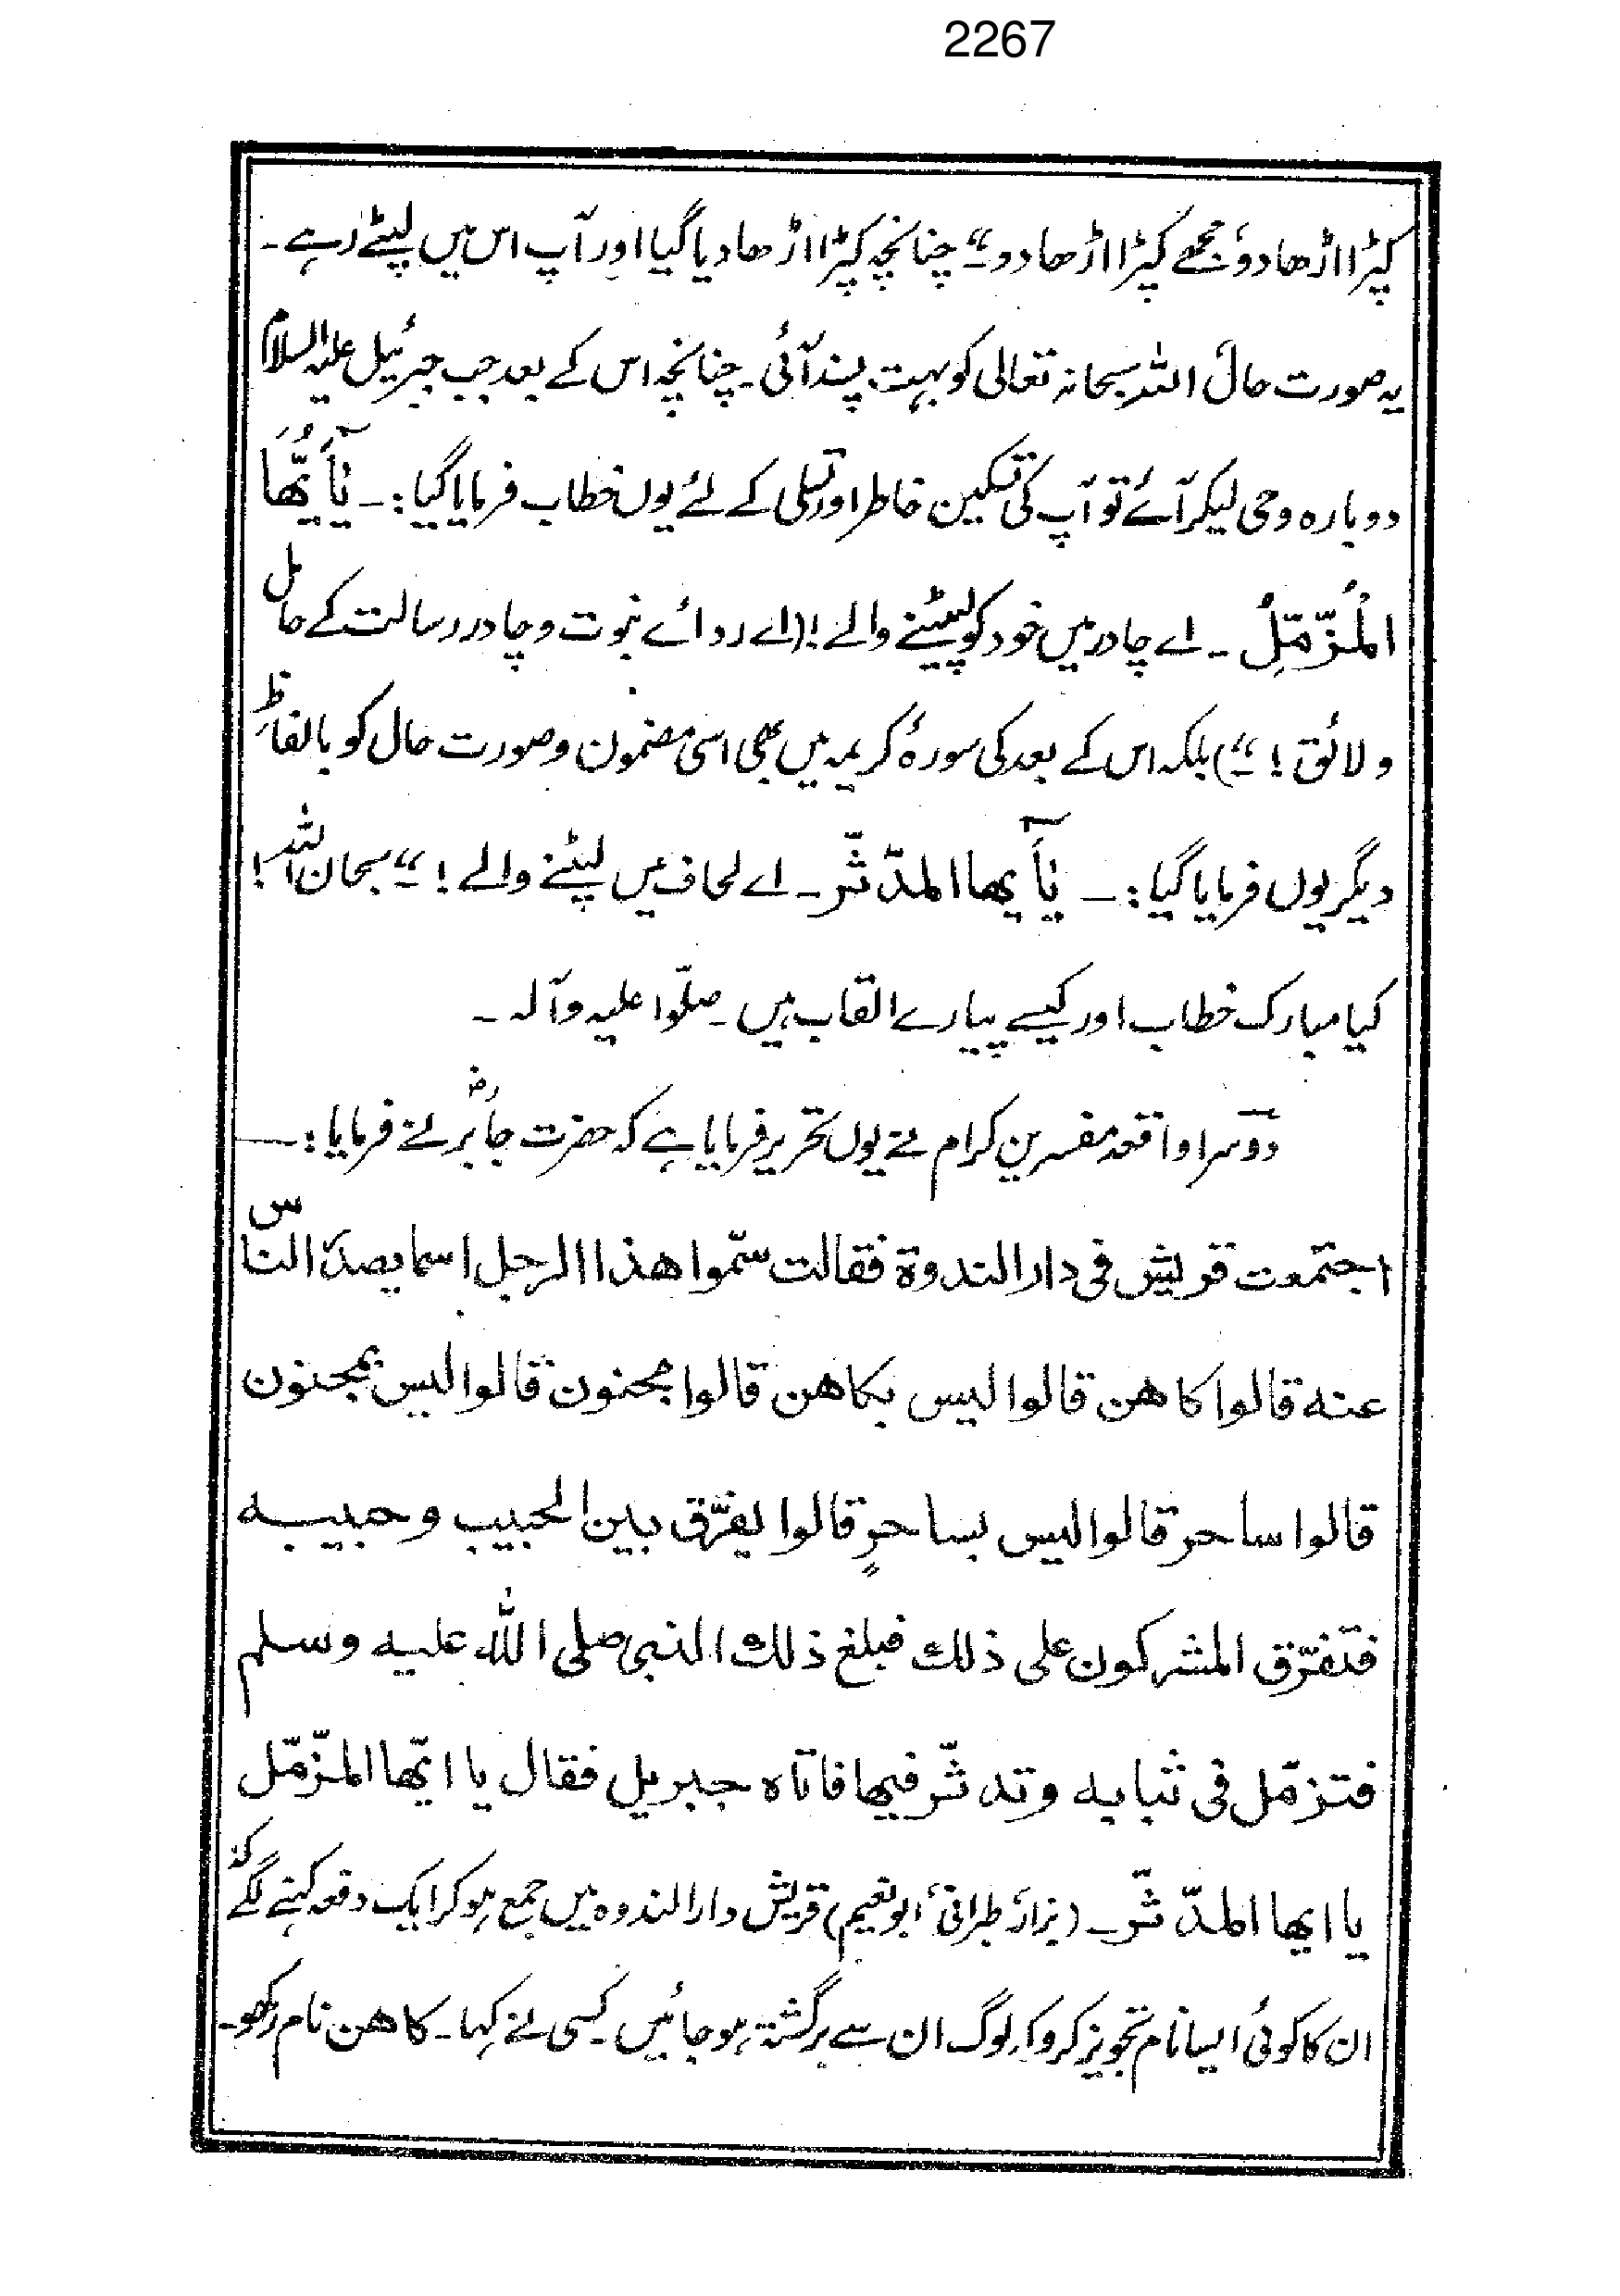 2267
کپڑا اڑھا دو، مجھے کپڑا اڑھا دو۔“ چنانچہ کپڑا اڑھا دیا گیا اور آپ اس میں لپٹے رہے۔
یہ صورت حال اللہ سبحانہ تعالی کو بہت پسند آئی۔ چنانچہ اس کے بعد جب جبرئیل علیہ السلام
دوبارہ وحی لیکر آئے تو آپ کی تسکین خاطر اور تسلی کے لئے یوں خطاب فرمایا گیا :۔ یٰۤاَیُّھَا
الْمُزَّمِّلُ ۔ اے چادر میں خود کو لپیٹنے والے ! (اے ردائے نبوت و چادر رسالت کے حامل
و لائق ! ۔“) بلکہ اس کے بعد کی سورۂ کریمہ میں بھی اسی مضمون و صورت حال کو بالفاظ
دیگر یوں فرمایا گیا :۔ یٰۤاَیھا المدّثّر ۔ اے لحاف میں لپٹنے والے ! ۔“ سبحان اللہ !
کیا مبارک خطاب اور کیسے پیارے القاب ہیں ۔ صلّوا علیہ وآلہ ۔
دوسرا واقعہ مفسرین کرام نے یوں تحریر فرمایا ہے کہ حضرت جابرؓ نے فرمایا :۔
اجتمعت قریش فی دار الندوة فقالت سمّوا ھذا الرجل اسما یصدّ الناس
عنه قالوا کاھن قالوا لیس بکاھن قالوا مجنون قالوا لیس بمجنون
قالوا ساحر قالوا لیس بساحرٍ قالوا یفرّق بین الحبیب و حبیبه
فتفرّق المشرکون علی ذلك فبلغ ذلك النبی صلی الله علیه وسلم
فتزمّل فی ثیابه وتدثّر فیھا فاتاه جبریل فقال یا ایّھا المزّمّل
یا ایھا المدّثّر۔ (بزار، طبرانی، ابونعیم) قریش دارالندوہ میں جمع ہوکر ایک دفعہ کہنے لگے کہ
ان کا کوئی ایسا نام تجویز کرو کہ لوگ ان سے برگشتہ ہو جائیں۔ کسی نے کہا ۔ کاھن نام رکھو۔